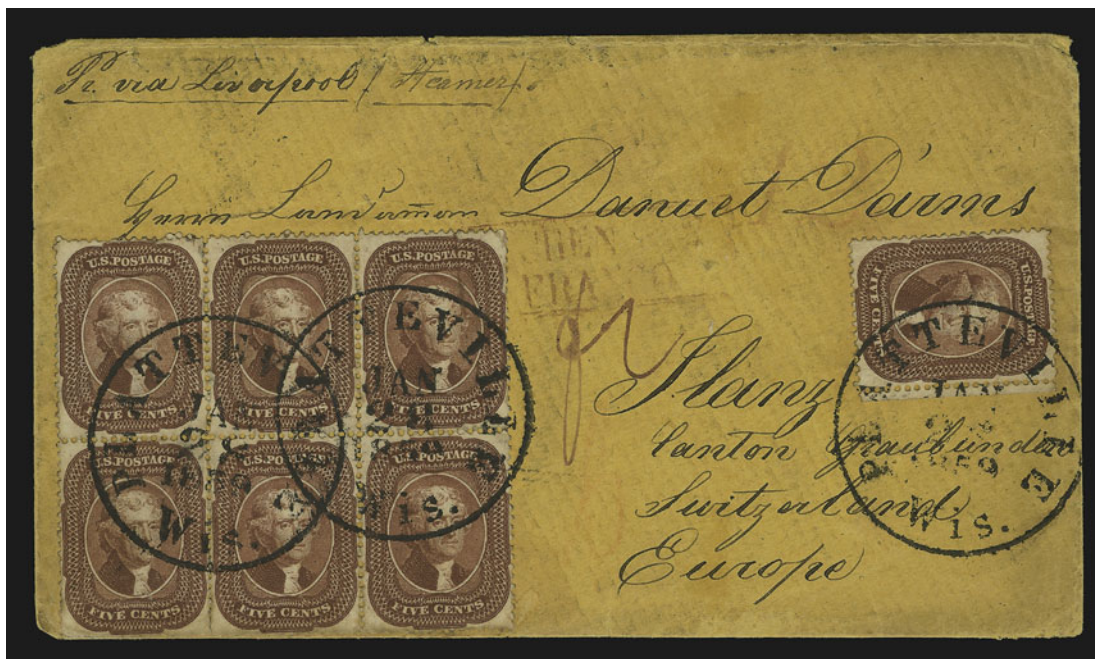 Pr. via Liverpool / Steamer /.
Herrn Landam̄an Danuel Darms
U.S. POSTAGE
FIVE CENTS
U.S. POSTAGE
FIVE CENTS
U.S. POSTAGE
FIVE CENTS
U.S. POSTAGE
FIVE CENTS
U.S. POSTAGE
FIVE CENTS
U.S. POSTAGE
FIVE CENTS
U.S. POSTAGE
FIVE CENTS
PLATTEVILLE
JAN
1859
WIS.
PLATTEVILLE
JAN
WIS.
PLATTEVILLE
JAN
1859
WIS.
FRANCO
Ilanz
Canton Graubünden
Switzerland
Europe